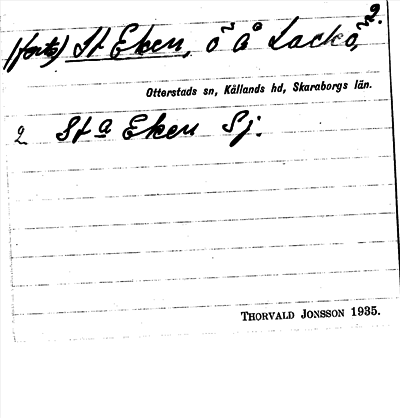 (forts) St Eken, ö å Läckö, 2.
Otterstads sn, Kållands hd, Skaraborgs län.
2 Sta Eken Sj.
THORVALD JONSSON 1935.